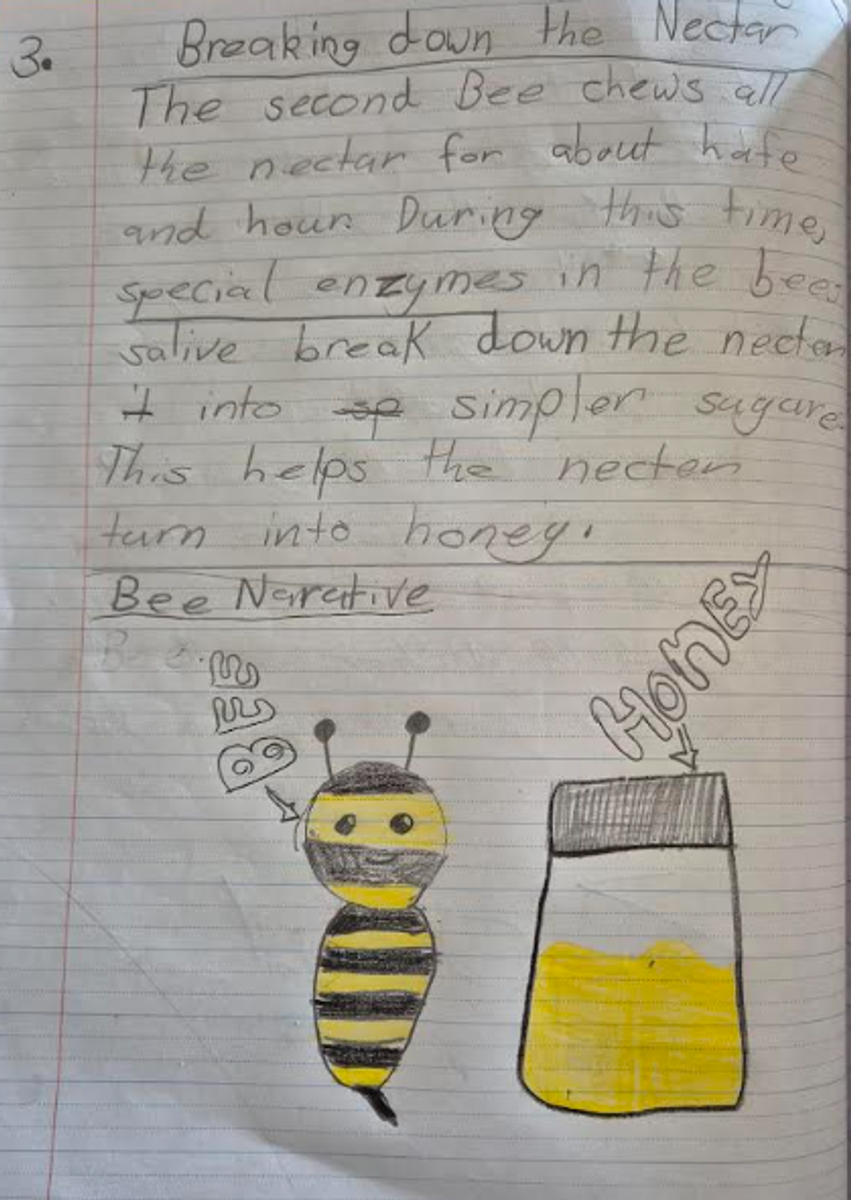 3. Breaking down the Nectar
The second Bee chews all
the nectar for about hafe
and hour. During this time,
special enzymes in the bees
salive break down the necter
into simpler sugare.
This helps the necter
turn into honey.
Bee Narative
Bee
BEE
HONEY